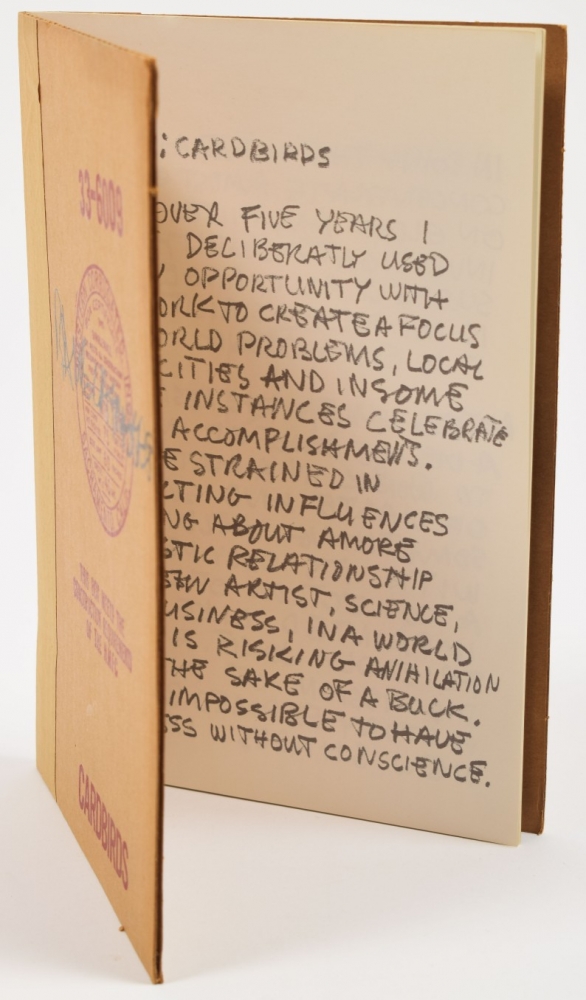 33-6009
CARDBIRDS
: CARDBIRDS
OVER FIVE YEARS I
DELIBERATLY USED
Y OPPORTUNITY WITH
ORK TO CREATE A FOCUS
ORLD PROBLEMS, LOCAL
CITIES AND IN SOME
INSTANCES CELEBRATE
ACCOMPLISHMENTS.
E STRAINED IN
CTING INFLUENCES
NG ABOUT A MORE
STIC RELATIONSHIP
EEN ARTIST, SCIENCE,
USINESS, IN A WORLD
IS RISKING ANIHILATION
HE SAKE OF A BUCK.
IMPOSSIBLE TO HAVE
SS WITHOUT CONSCIENCE.